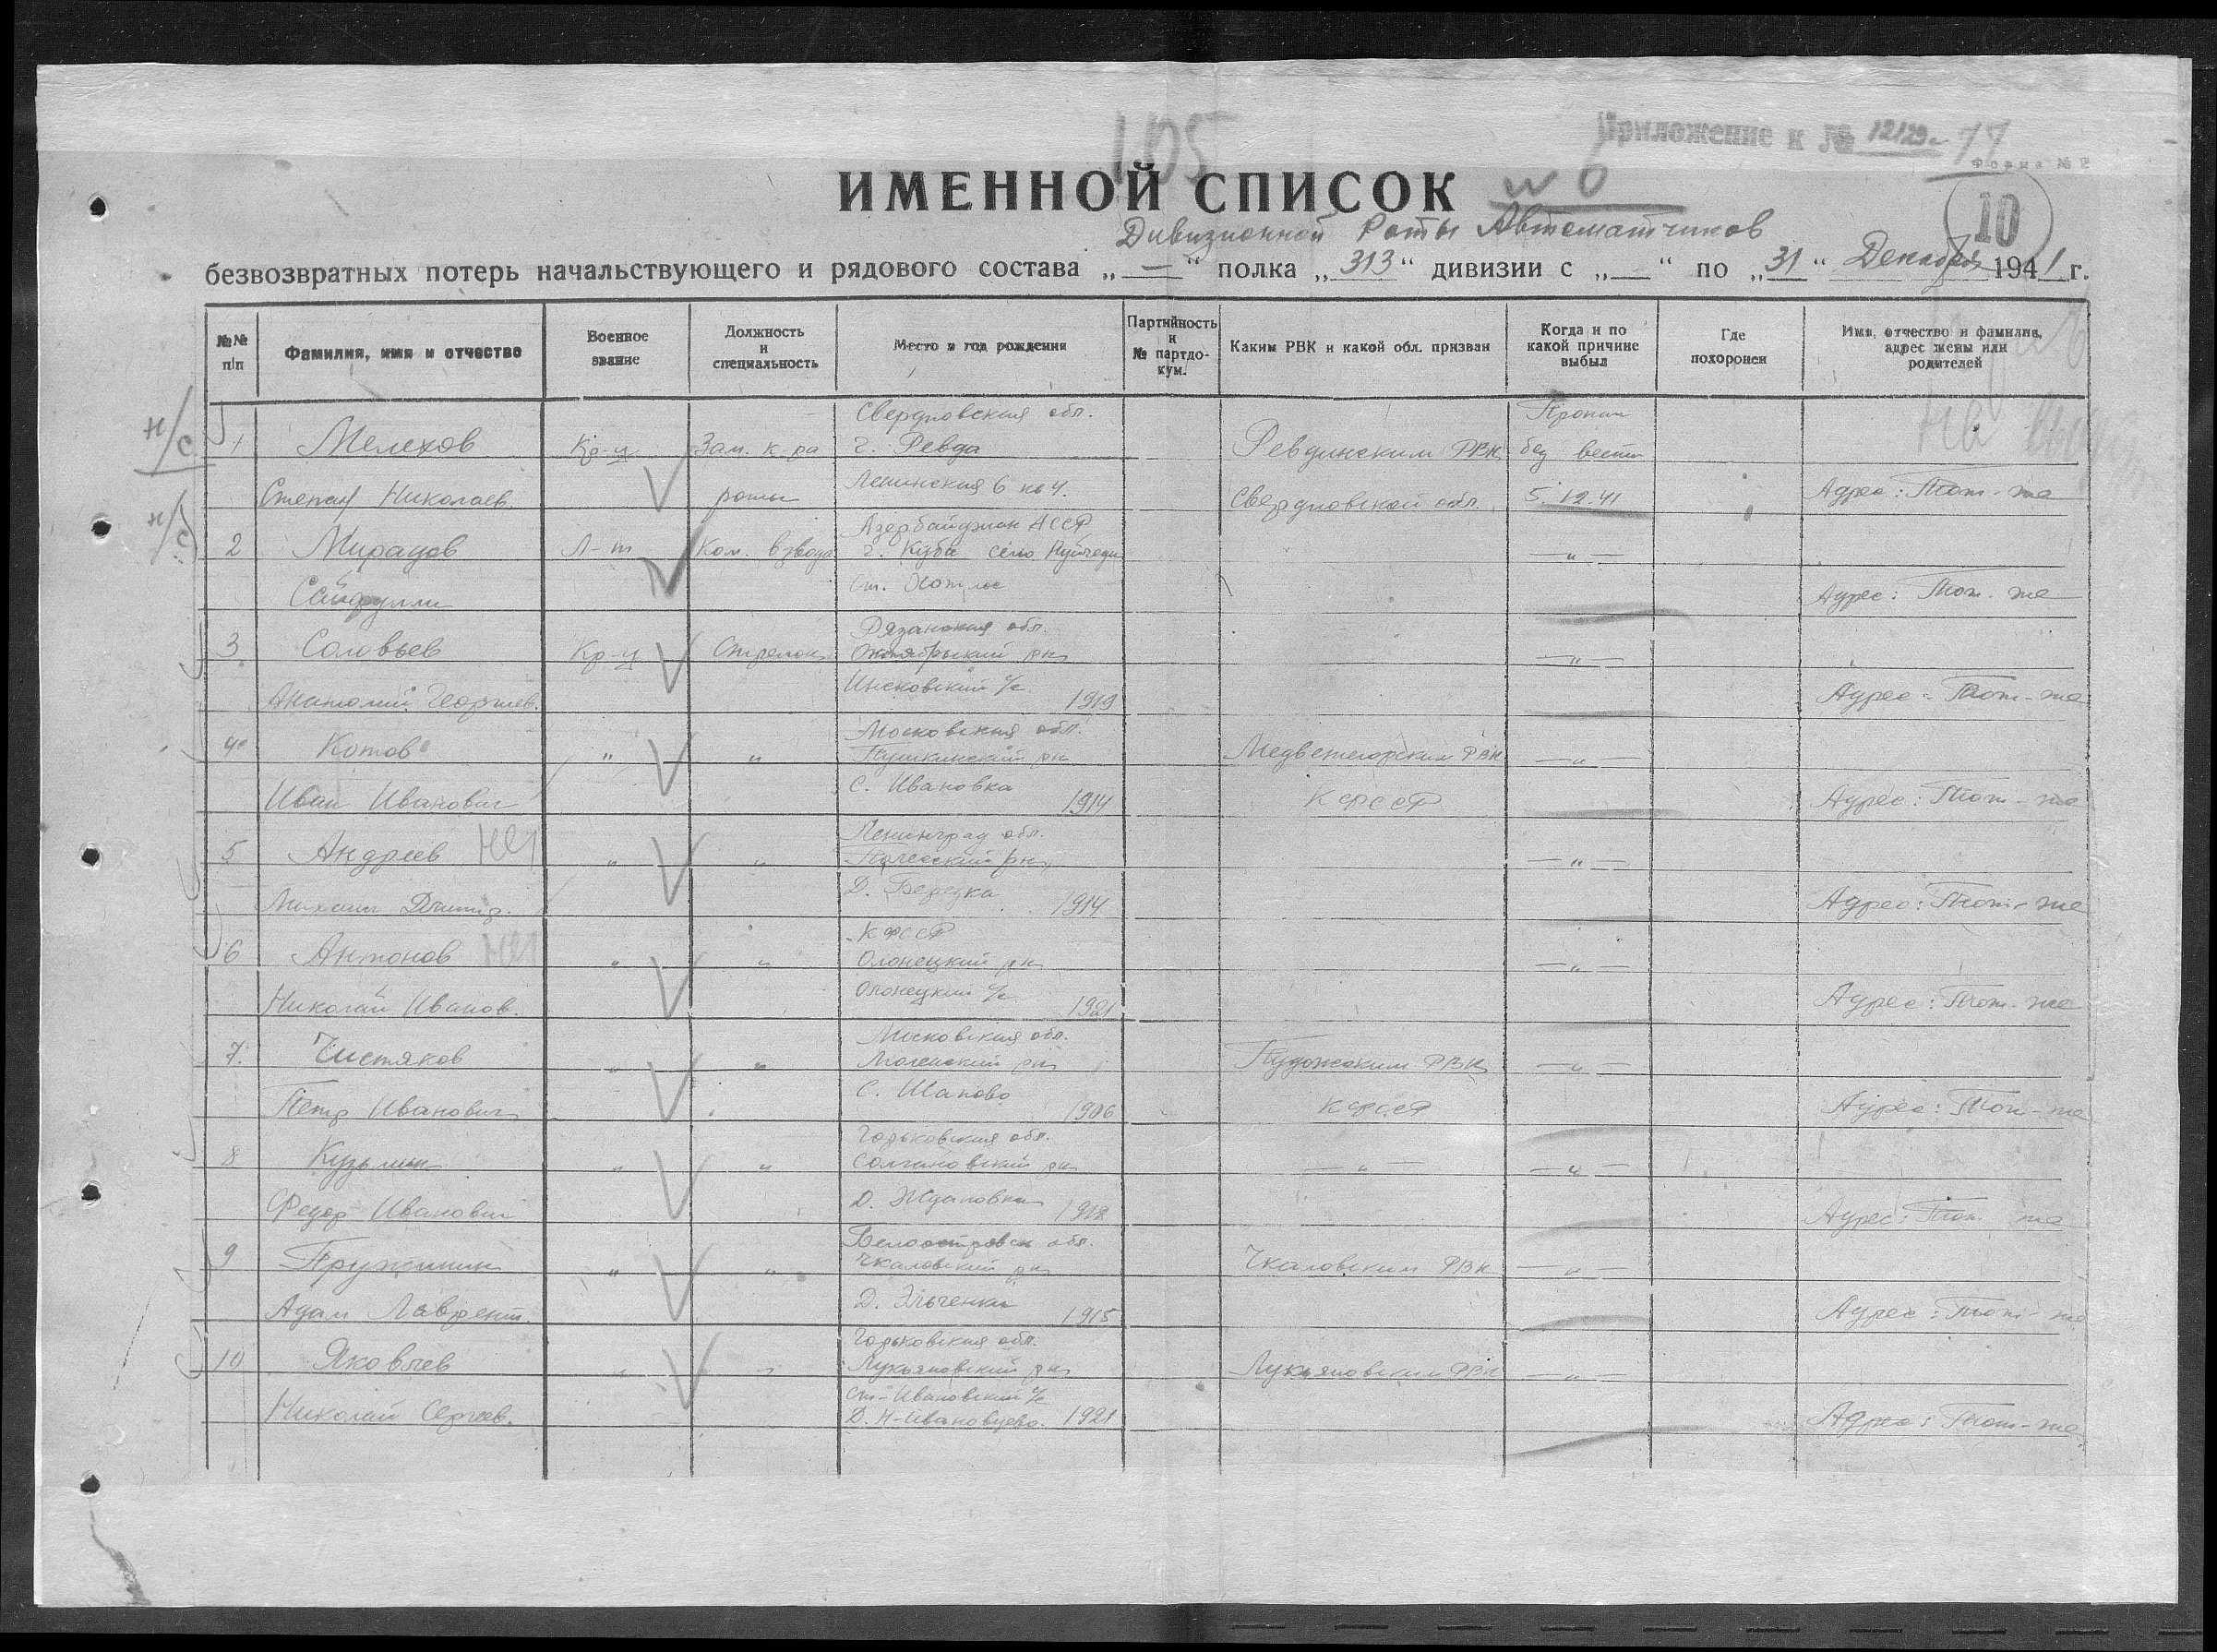 105
Приложение к № 12129с 77
Форма № 2
ИМЕННОЙ СПИСОК
10
Дивизионной Роты Автоматчиков
безвозвратных потерь начальствующего и рядового состава „ — “ полка „ 313 “ дивизии с „ — “ по „ 31 “ Декабря 1941 г.
№№ п/п
Фамилия, имя и отчество
Военное звание
Должность и специальность
Место и год рождения
Партийность и № партдокум.
Каким РВК и какой обл. призван
Когда и по какой причине выбыл
Где похоронен
Имя, отчество и фамилия, адрес жены или родителей
н/с
Свердловская обл. Пропал
1 Мелехов Кр-ц Зам. к-ра г. Ревда Ревдинским РВК без вести
Степан Николаев. роты Ленинская 6 кв 4. Свердловской обл. 5.12.41 Адрес: Тот-же
н/с
Азербайджан АССР
2 Мурадов Л-т Ком. взвода г. Куба село — " —
Сайфулли ст. Адрес: Тот-же
Рязанская обл.
3 Соловьев Кр-ц Стрелок Октябрьский р-н — " —
Анатолий Георгиев. с/с 1919 Адрес: Тот-же
Московская обл.
4 Котов " " Пушкинский р-н Медвежегорским РВК — " —
Иван Иванович С. Ивановка 1914 КФССР Адрес: Тот-же
Ленинград обл.
5 Андреев нет " " р-н — " —
Михаил Дмитр. Д. Березка 1914 Адрес: Тот-же
КФССР
6 Антонов нет " " Олонецкий р-н — " —
Николай Иванов. Олонецкий с/с 1921 Адрес: Тот-же
Московская обл.
7. Чистяков " " р-н Пудожским РВК — " —
Петр Иванович С. Шапово 1906 КФССР Адрес: Тот-же
Горьковская обл.
8 Кузьмин " " р-н — " — — " —
Федор Иванович Д. Ждановка 1918 Адрес: Тот же
обл.
9 Пружинин " " Чкаловский р-н Чкаловским РВК — " —
Адам Лаврент. Д. 1915 Адрес: Тот-же
Горьковская обл.
10 Яковлев " " Лукьяновский р-н Лукьяновским РВК — " —
Ст-Ивановский с/с
Николай Сергеев. Д. Н-Ивановцево. 1921 Адрес: Тот-же